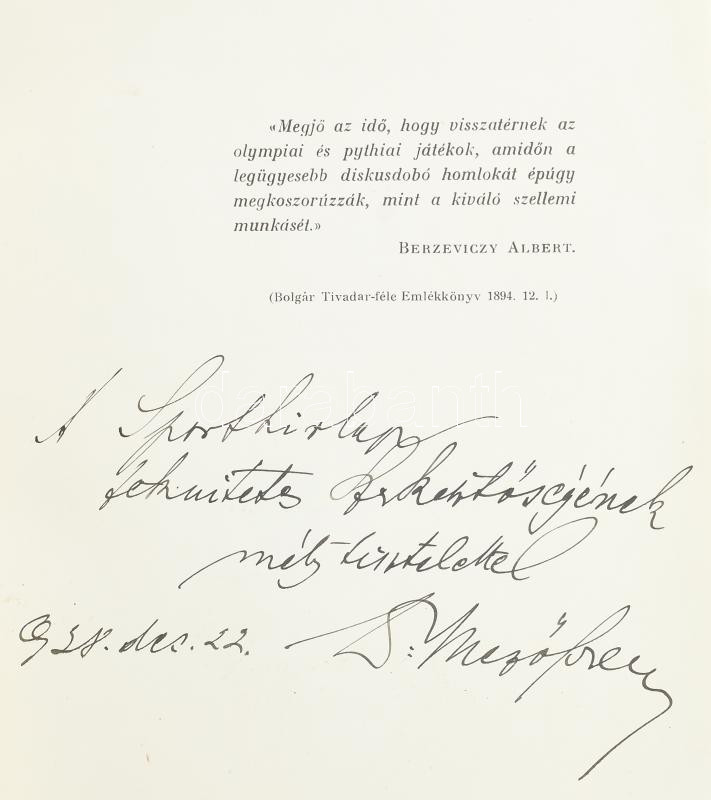 «Megjő az idő, hogy visszatérnek az
olympiai és pythiai játékok, amidőn a
legügyesebb diskusdobó homlokát épúgy
megkoszorúzzák, mint a kiváló szellemi
munkását.»
BERZEVICZY ALBERT.
(Bolgár Tivadar-féle Emlékkönyv 1894. 12. l.)
darabanth
A Sporthirlap
tekintetes Szerkesztőségének
mély tisztelettel
938. dec. 22. Dr: Mező Ferenc